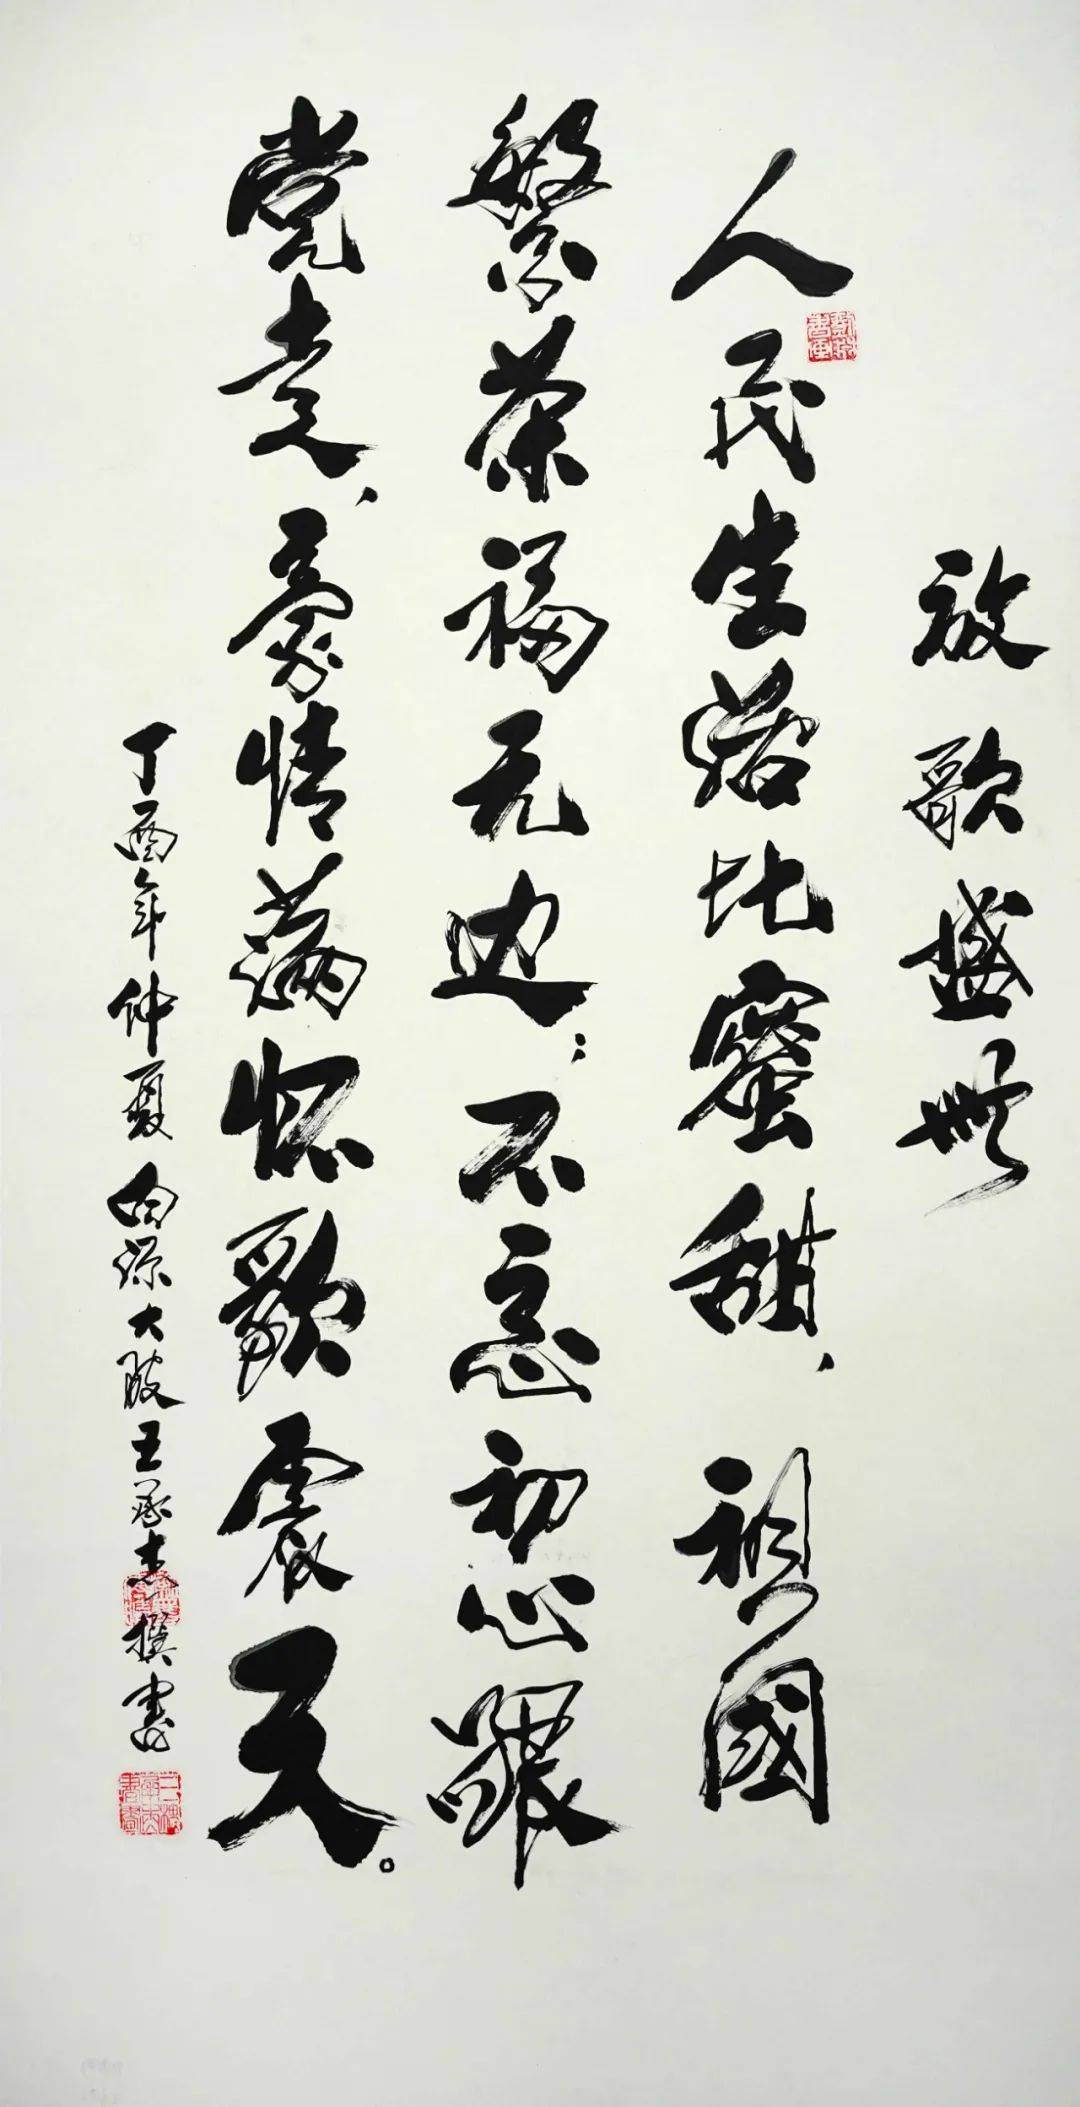 放歌盛世
人民生活比蜜甜，祖國
繁荣福无边；不忘初心跟
党走，豪情满怀歌震天。
丁酉年仲夏白源大陂王撰書